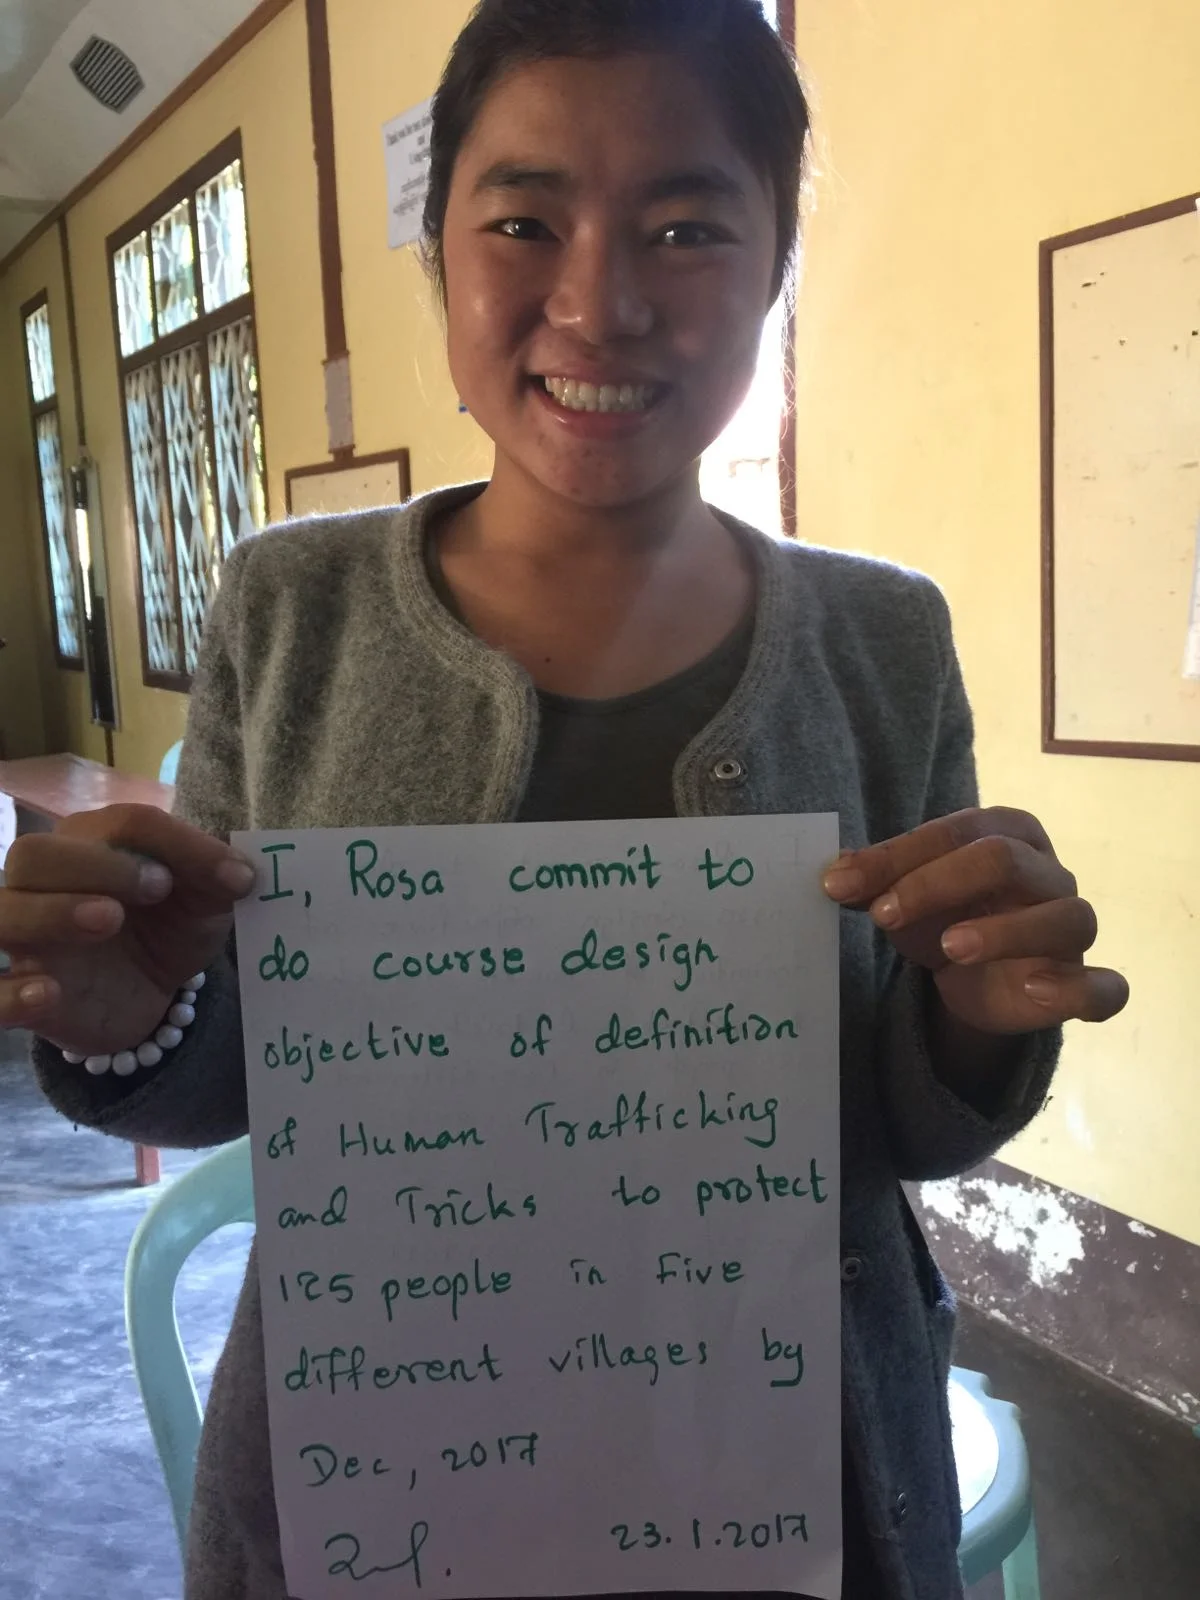 I, Rosa commit to
do course design
objective of definition
of Human Trafficking
and Tricks to protect
125 people in Five
different villages by
Dec, 2017
23.1.2017